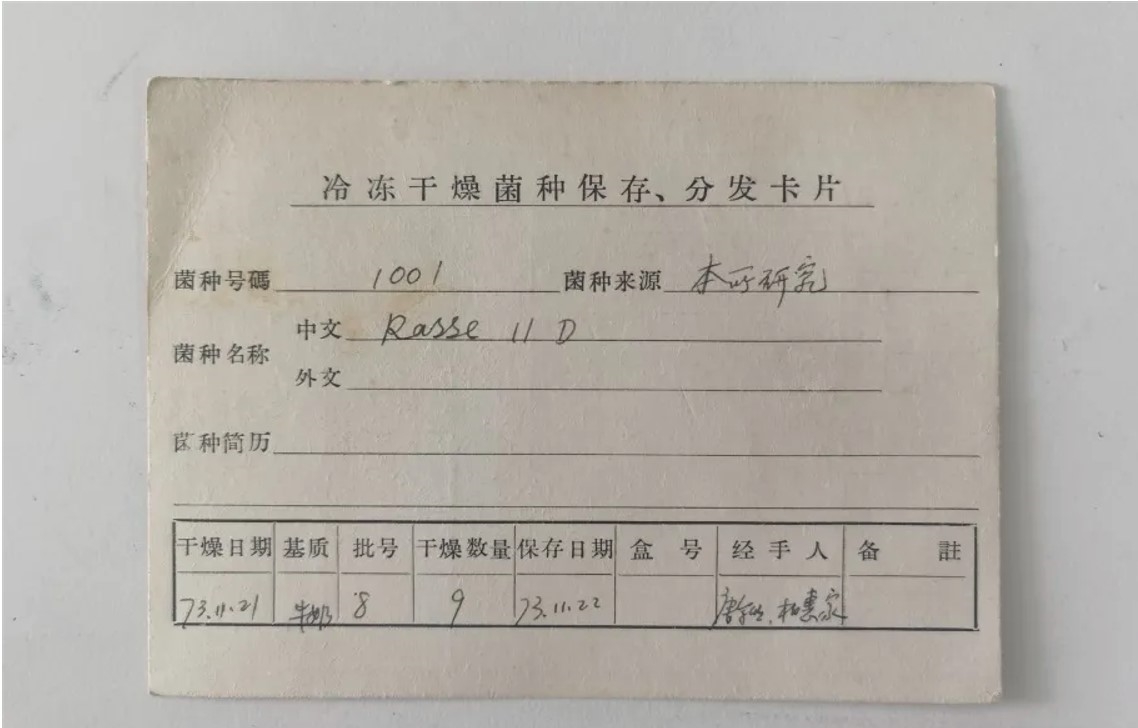 冷冻干燥菌种保存、分发卡片
菌种号碼 1001 菌种来源 本所研究
菌种名称 中文 Rasse 11 D
外文
菌种简历
干燥日期 基质 批号 干燥数量 保存日期 盒号 经手人 备註
73.11.21 牛奶 8 9 73.11.22